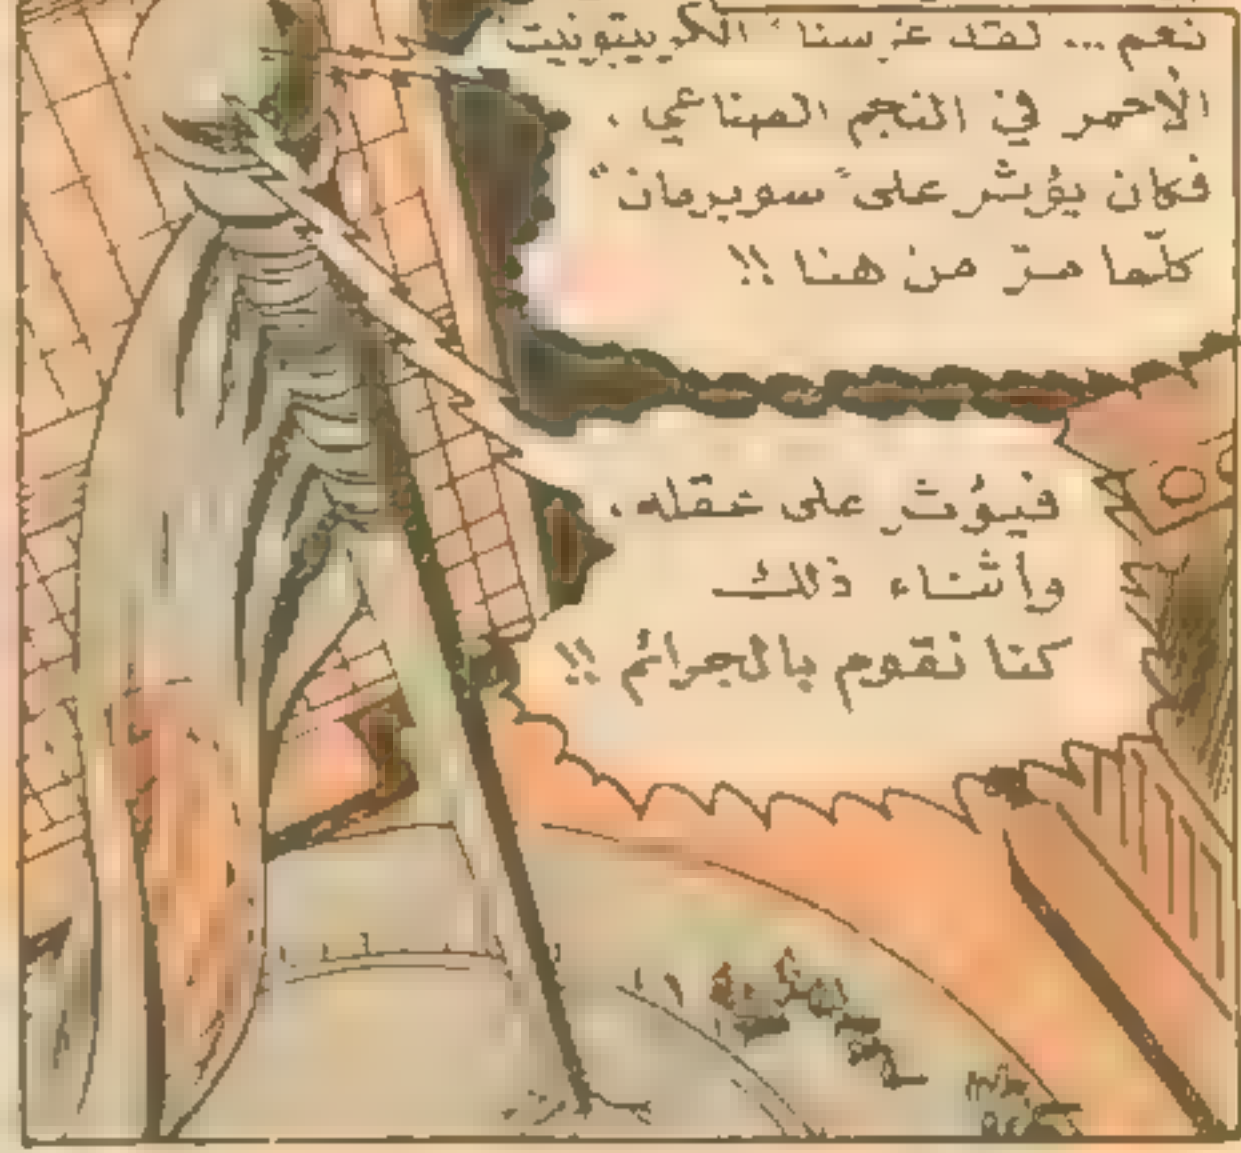 نعم... لقد غرسنا "الكريبتونيت
الأحمر في النجم الصناعي،
فكان يؤثّر على "سوبرمان"
كلّما مرّ من هنا !!
فيؤثّر على عقله،
وأثناء ذلك
كنا نقوم بالجرائم !!